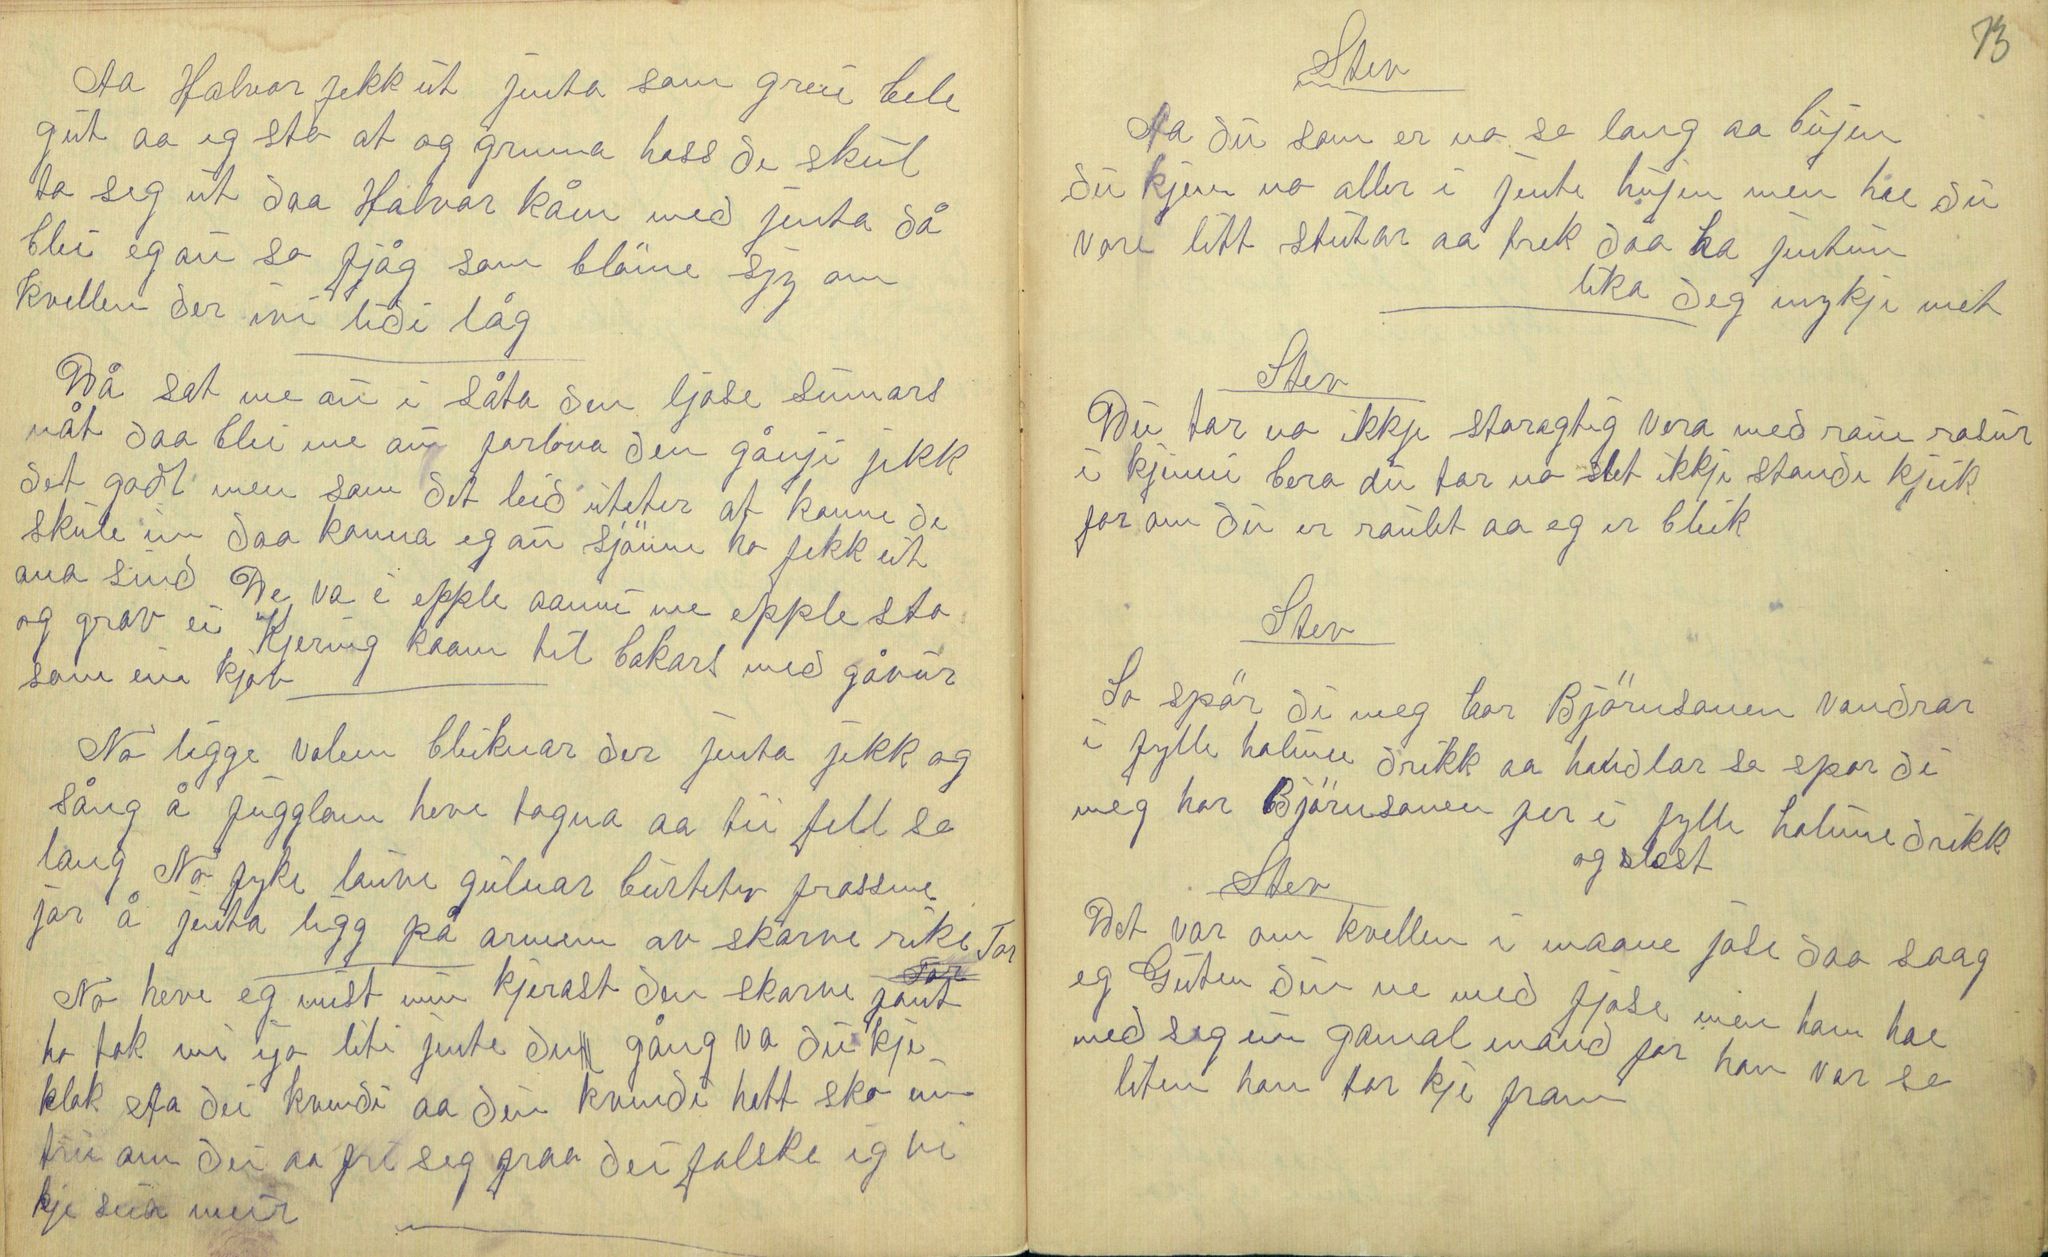 Aa Halvor jekk ut jenta som greie bele
gut aa eg sto at og gruna hoss de skul
ta seg ut daa Halvar kåm med jenta då
blei eg au so fjåg som blöme sjy om
kvellen der ivi lidi låg
Då sat me au i såta den ljose sumars
nåt daa blei me au forlova den gånji jekk
det godt men som det leid uteter at konne de
skule in daa konna eg au sjönne ho fekk eit
ana sind De va i epple aanni me epple sto
og grov ei Kjering kaam til bakars med gåvur
som ein kjov
No ligge volem bleiknar der jenta jekk og
sång å fugglam heve tagna aa tii fell se
lang No fyke lauve gulnar burteter frossne
jor å jenta ligg på armem av skarve rike Tor
No heve eg mist min kjerast den skarve fant
ho tok mi ijo liti jente den gång va du kje
klok Aa dei kvendi aa dei kvendi hett sko ein
tru om dei aa fri seg fraa dei falske eg vi
kje seia meir
73
Stev
Aa du som er no so lang aa bujen
du kjem no aller i jente hujen men hae du
vore litt stutar aa trek daa ha jentun
lika deg mykje met
Stev
Du tar no ikkje storagtig vera med raue rosur
i kjinni bera du tar no slet ikkje standi kjeik
for om du er raulet aa eg er bleik
Stev
So spör di meg hor Björnsonen vandrar
i fylle holime drikk aa handlar se spor di
meg hor Björnsonen fer i fylle holime drikk
og slost
Stev
Det var om kvellen i maane jose daa saag
eg Guten din ne med fjose men ham hae
med seg ein gamal mand for han var se
liten han tor kje fram